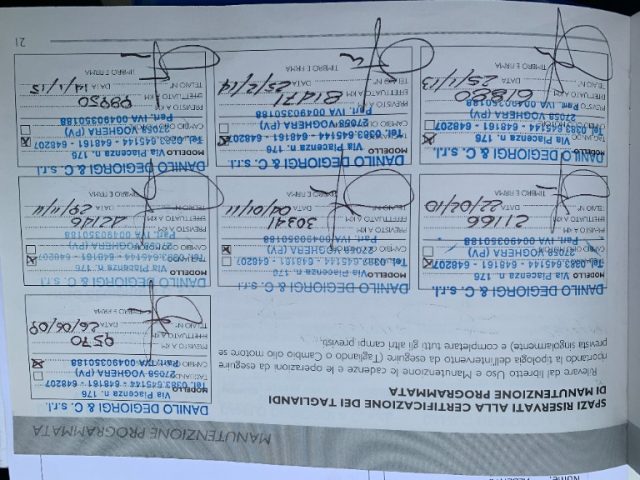 MANUTENZIONE PROGRAMMATA
SPAZI RISERVATI ALLA CERTIFICAZIONE DEI TAGLIANDI
DI MANUTENZIONE PROGRAMMATA
Rilevare dal libretto Uso e Manutenzione le cadenze e le operazioni da eseguire
riportando la tipologia dell'intervento da eseguire (Tagliando o Cambio olio motore se
prevista singolarmente) e completare tutti gli altri campi previsti.
DANILO DEGIORGI & C. s.r.l.
Via Piacenza n. 176
Tel. 0383.645144 - 648161 - 648207
27058 VOGHERA (PV)
Part. IVA 00490350188
PREVISTO A KM
EFFETTUATO A KM
9570
TELAIO N° DATA 26/06/09
TIMBRO E FIRMA
DANILO DEGIORGI & C. s.r.l.
MODELLO
Via Piacenza n. 176
Tel. 0383.645144 - 648161 - 648207
27058 VOGHERA (PV)
Part. IVA 00490350188
PREVISTO A KM
EFFETTUATO A KM 21166
TELAIO N° DATA 22/02/10
TIMBRO E FIRMA
DANILO DEGIORGI & C. s.r.l.
MODELLO
Via Piacenza n. 176
Tel. 0383.645144 - 648161 - 648207
27058 VOGHERA (PV)
Part. IVA 00490350188
PREVISTO A KM
EFFETTUATO A KM 30341
TELAIO N° DATA 04/01/11
TIMBRO E FIRMA
DANILO DEGIORGI & C. s.r.l.
MODELLO
Via Piacenza n. 176
Tel. 0383.645144 - 648161 - 648207
27058 VOGHERA (PV)
Part. IVA 00490350188
PREVISTO A KM
EFFETTUATO A KM
TELAIO N° DATA
TIMBRO E FIRMA
DANILO DEGIORGI & C. s.r.l.
Via Piacenza n. 176
Tel. 0383.645144 - 648161 - 648207
27058 VOGHERA (PV)
Part. IVA 00490350188
PREVISTO A KM
EFFETTUATO A KM 61880
TELAIO N° DATA 25/1/13
TIMBRO E FIRMA
DANILO DEGIORGI & C. s.r.l.
MODELLO
Via Piacenza n. 176
Tel. 0383.645144 - 648161 - 648207
27058 VOGHERA (PV)
Part. IVA 00490350188
PREVISTO A KM
EFFETTUATO A KM 81471
TELAIO N° DATA 25/2/14
TIMBRO E FIRMA
DANILO DEGIORGI & C. s.r.l.
MODELLO
Via Piacenza n. 176
Tel. 0383.645144 - 648161 - 648207
27058 VOGHERA (PV)
Part. IVA 00490350188
PREVISTO A KM
EFFETTUATO A KM 98950
TELAIO N° DATA 14/1/15
TIMBRO E FIRMA
21